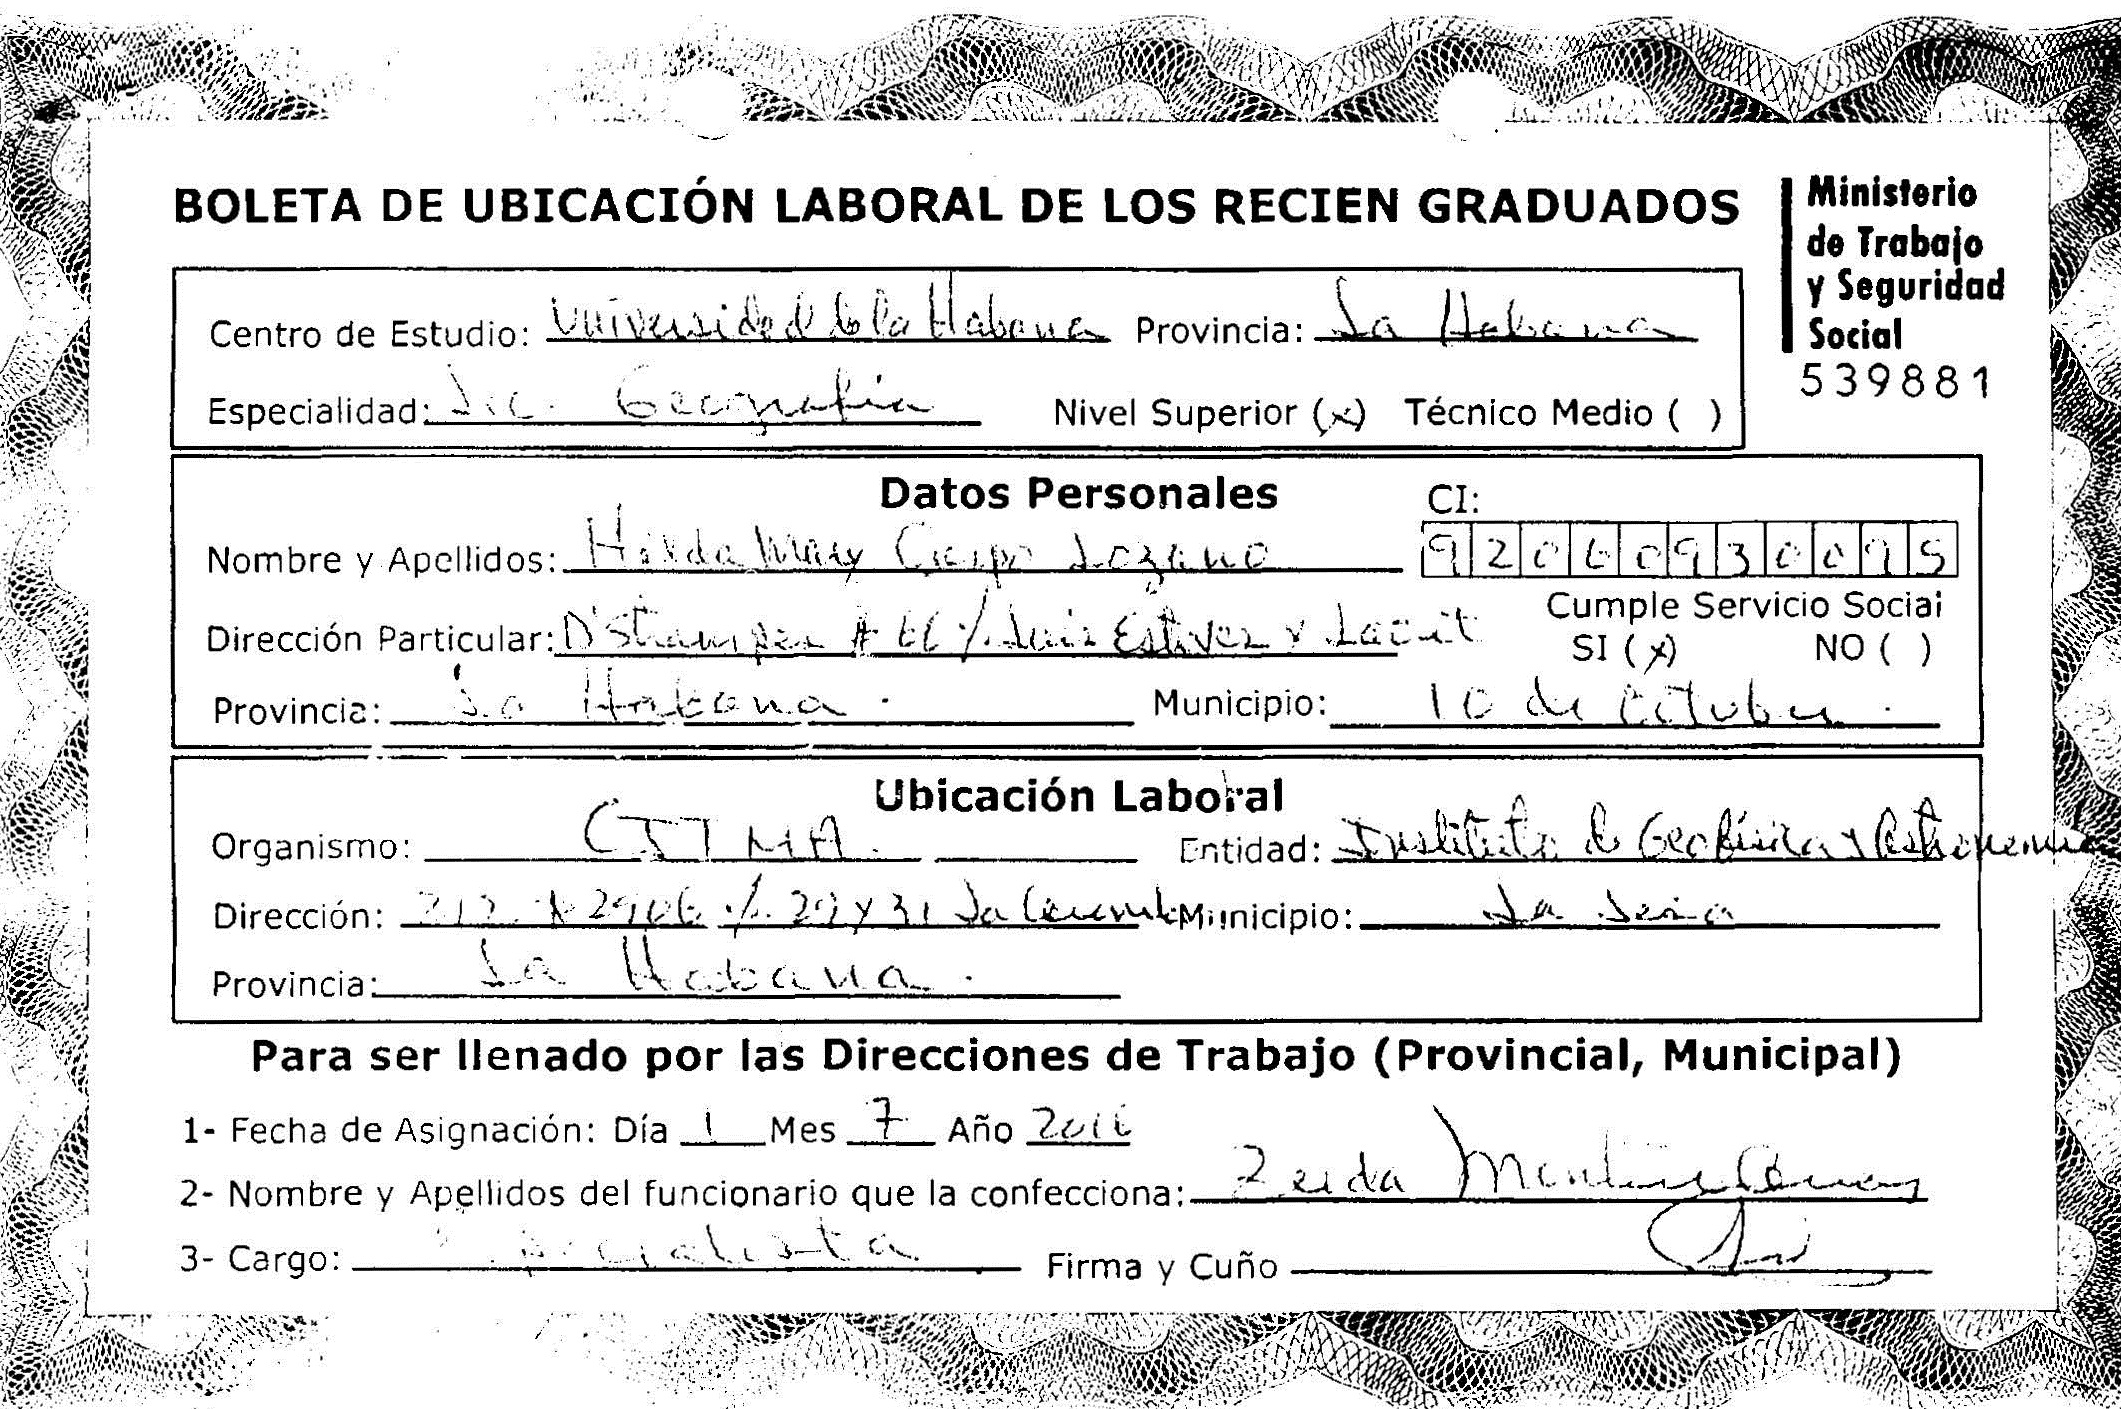 BOLETA DE UBICACIÓN LABORAL DE LOS RECIEN GRADUADOS
Ministerio
de Trabajo
y Seguridad
Social
539881
Centro de Estudio: Universidad de la Habana Provincia: La Habana
Especialidad: Lic. Geografía Nivel Superior (x) Técnico Medio ( )
Datos Personales
CI:
Nombre y Apellidos: Hilda Mary Crespo Lozano 920609300
Cumple Servicio Social
Dirección Particular: D'Strampes # 66 /. Luis Estevez y Lacret SI (x) NO ( )
Provincia: La Habana. Municipio: 10 de Octubre.
Ubicación Laboral
Organismo: CITMA. Entidad: Instituto de Geofísica y Astronomía
Dirección: 212 # 2906 /. 29 y 31 La Coronela Municipio: La Lisa
Provincia: La Habana.
Para ser llenado por las Direcciones de Trabajo (Provincial, Municipal)
1- Fecha de Asignación: Día 1 Mes 7 Año 2016
2- Nombre y Apellidos del funcionario que la confecciona: Zeida
3- Cargo: Especialista Firma y Cuño